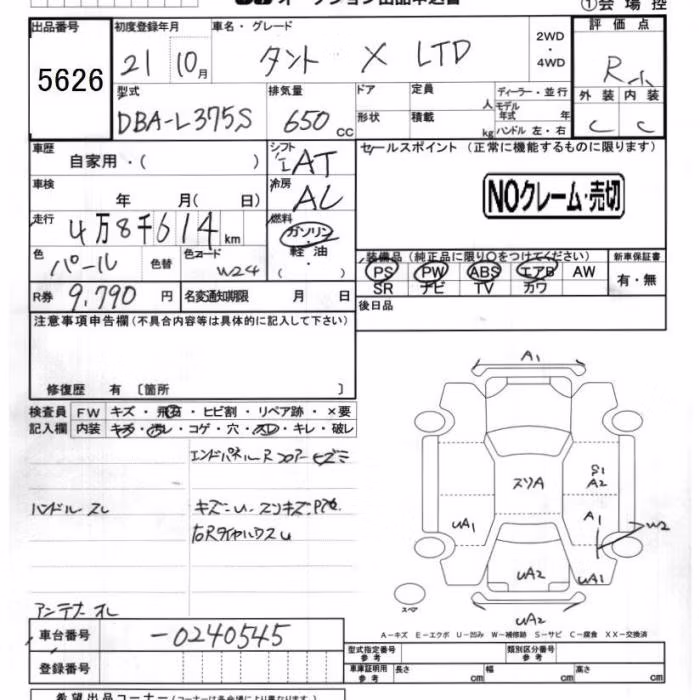 オークション出品申込書
①会場控
出品番号 5626
初度登録年月 21 10月
車名・グレード タント X LTD
2WD・4WD
評価点 R
外装 C 内装 C
型式 DBA-L375S
排気量 650 cc
ドア 定員 人
形状 積載 kg
ディーラー・並行
モデル年式 年
ハンドル 左・右
車歴 自家用・( )
シフト AT
セールスポイント (正常に機能するものに限ります)
NOクレーム・売切
車検 年 月( 日)
冷房 AC
走行 4万8千614km
燃料 ガソリン・軽油・( )
色 パール 色替 色コード W24
装備品 (純正品に限り○をつけてください) 新車保証書
PS PW ABS エアB AW 有・無
SR ナビ TV カワ
R券 9,790円 名変通知期限 月 日
後日品
注意事項申告欄(不具合内容等は具体的に記入して下さい)
修復歴 有 〔箇所 〕
検査員 FW キズ・飛石・ヒビ割・リペア跡・×要
記入欄 内装 キズ・汚レ・コゲ・穴・スレ・キレ・破レ
エンドパネルR フロアーヒズミ
ハンドルスレ
キズ・U・スリキズ・
アンテナオレ
A1
スリA
S1
A2
A1
W2
UA1
UA2
UA1
スペア
UA2
A-キズ E-エクボ U-凹み W-補修跡 S-サビ C-腐食 XX-交換済
車台番号 -0240545
登録番号
型式指定番号 参考 類別区分番号 参考
車庫証明用 参考 長さ cm 幅 cm 高さ cm
希望出品コーナー